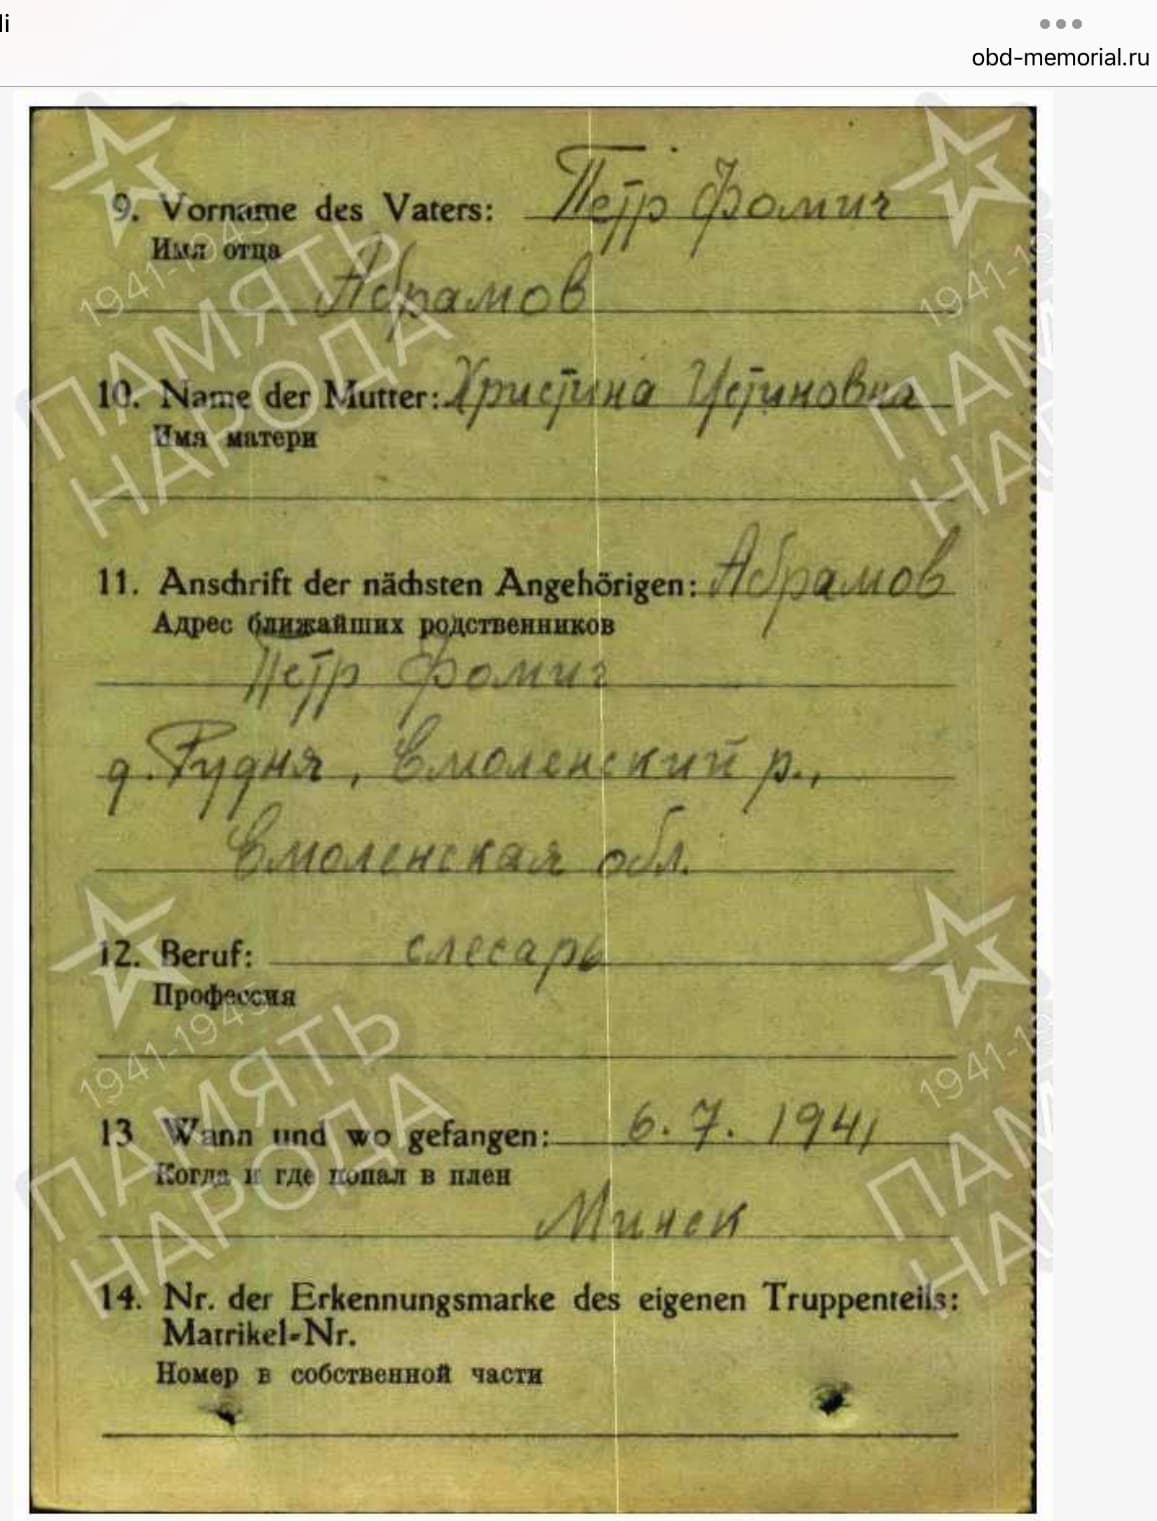 li
obd-memorial.ru
9. Vorname des Vaters: Петр Фомич
Имя отца
Абрамов
10. Name der Mutter: Христина Устиновна
Имя матери
11. Anschrift der nächsten Angehörigen: Абрамов
Адрес ближайших родственников
Петр Фомич
д. Рудня, Смоленский р.,
Смоленская обл.
12. Beruf: слесарь
Профессия
13 Wann und wo gefangen: 6. 7. 1941
Когда и где попал в плен
Минск
14. Nr. der Erkennungsmarke des eigenen Truppenteils:
Matrikel-Nr.
Номер в собственной части
1941-1945
ПАМЯТЬ
НАРОДА
1941-1
ПАМ
НА
1941-1945
ПАМЯТЬ
НАРОДА
1941-1
ПАМ
НА